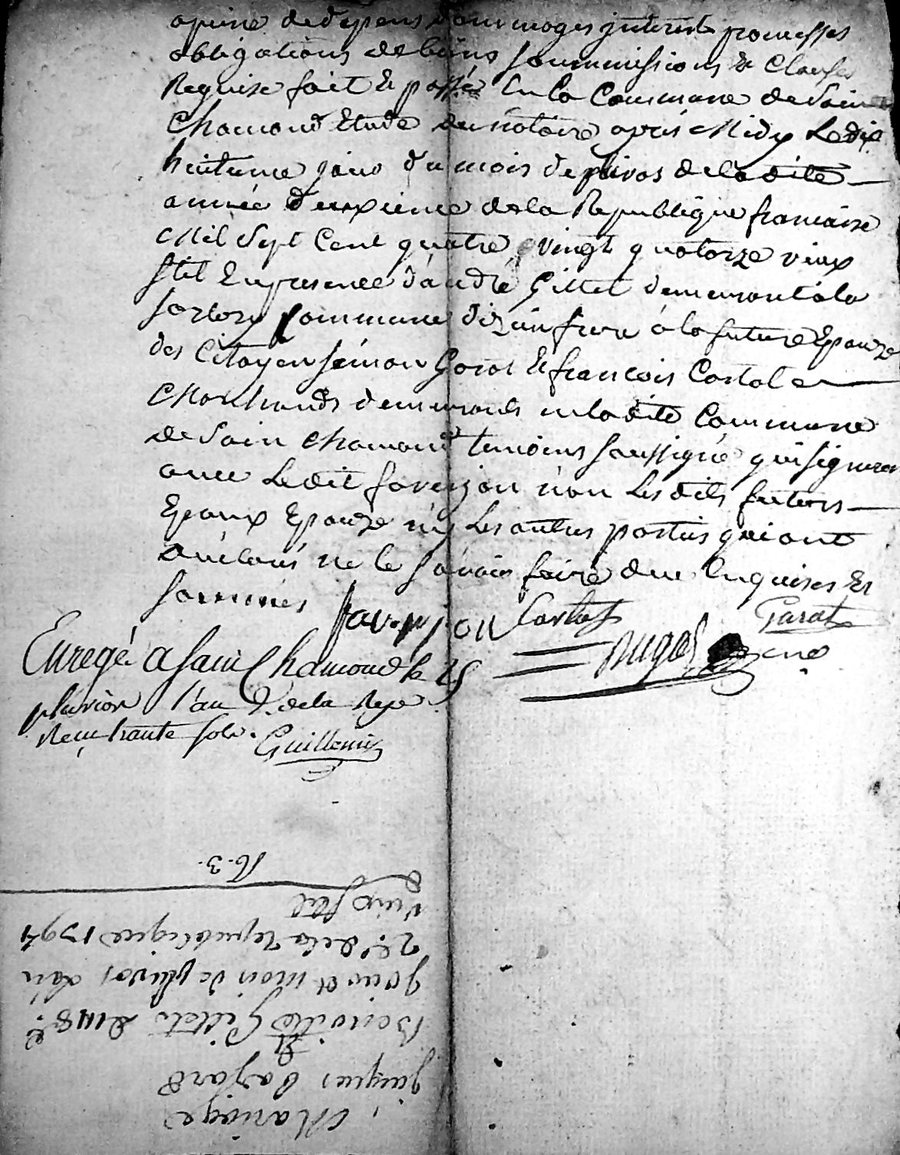 apeine de depens dommages jnterest promesses
obligations de biens soummissions & Clauses
Requise fait Et passé En la Commune de Sain
Chamond Etude du notaire aprés Midy Le dix
huitieme jour du mois de plivos de la dite
année deuxieme de la Republique francaise
Mil Sept Cent quatre vingt quatorze vieux
stil En presence d'andré Gillet demeurant a la
Commune d'izieu frere á la future Epouze
des Citoyen Simon Et francois
Marchands demeurants en la dite Commune
de Sain Chamond temoins soussigné qui signeron
avec Ledit non Les dits futurs
Epoux Epouze ni Les autres partis qui ont
declarés ne le savoir faire de ce Enquises Et
sommés
Enregé a Saint Chamond le 25
pluviôse l'an 2e. de la Repe
Reçu trante sols. Guillemin
16. 3.
Mariage
jacques
Et
Benoitte Gillet du 18e
jour et mois de plivos l'an
2e. de la republique 1794
vieux stil